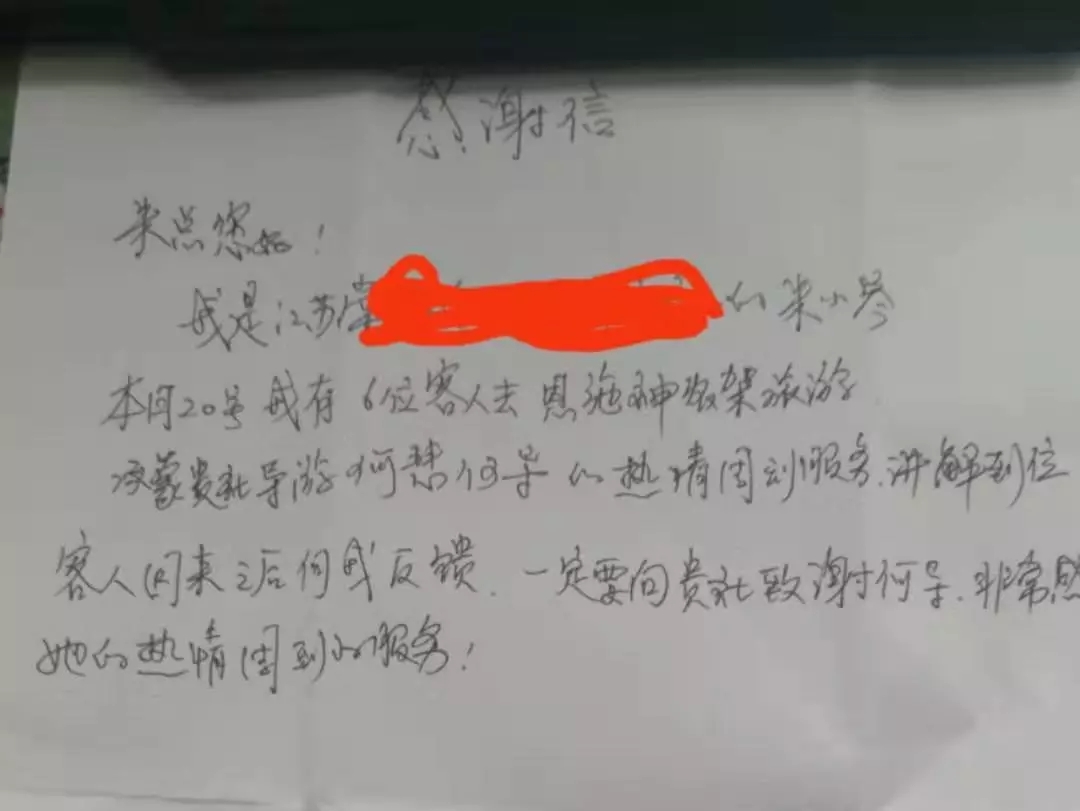 感谢信
米总您好！
我是江苏常 的朱小琴
本月20号我有6位客人去恩施神农架旅游
承蒙贵社导游何慧何导的热情周到服务.讲解到位
客人回来之后向我反馈.一定要向贵社致谢何导.非常感
她的热情周到的服务！